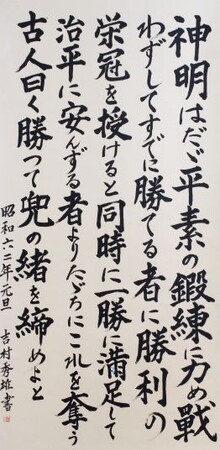 神明はたゞ平素の鍛練に力め戦
わずしてすでに勝てる者に勝利の
栄冠を授けると同時に一勝に満足して
治平に安んずる者よりたゞちにこれを奪う
古人曰く勝つて兜の緒を締めよと
昭和六二年元旦 吉村秀雄書